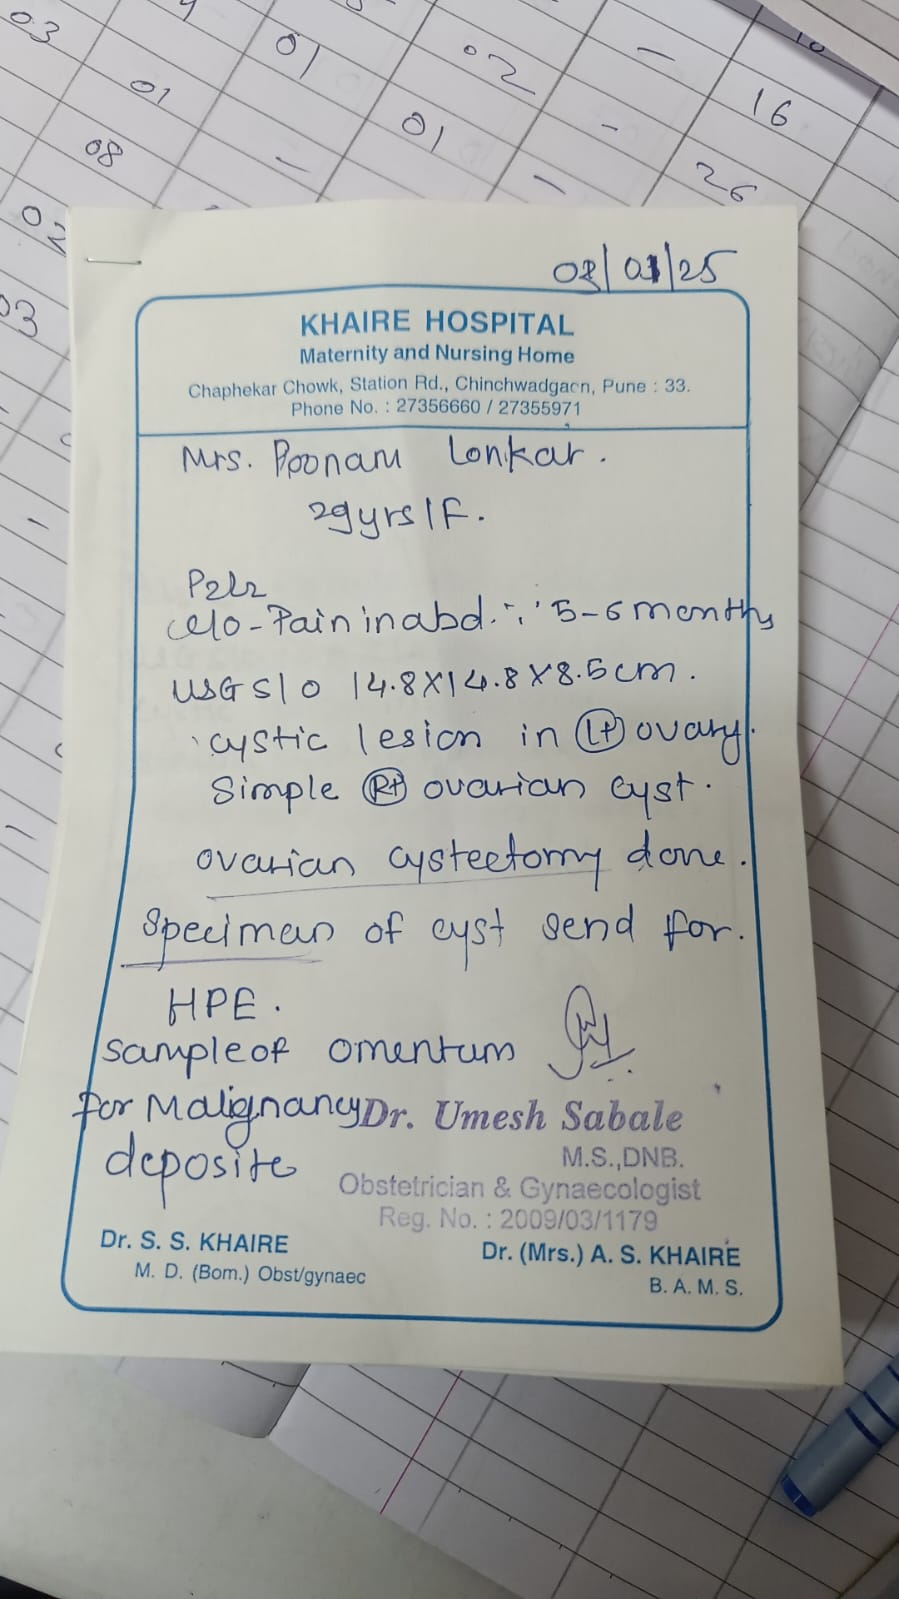 03
01
02
-
16
01
01
-
26
08
-
-
02
03
08/01/25
KHAIRE HOSPITAL
Maternity and Nursing Home
Chaphekar Chowk, Station Rd., Chinchwadgaon, Pune : 33.
Phone No. : 27356660 / 27355971
Mrs. Poonam Lonkar.
29yrs/F.
P2L2
c/o - Pain in abd. ∵ 5-6 months
USG S/O 14.8X14.8X8.5cm.
cystic lesion in Lt ovary.
Simple Rt ovarian cyst.
ovarian cystectomy done.
Specimen of cyst send for.
HPE.
Sample of omentum
for Malignancy
deposite
Dr. Umesh Sabale
M.S.,DNB.
Obstetrician & Gynaecologist
Reg. No. : 2009/03/1179
Dr. S. S. KHAIRE
M. D. (Bom.) Obst/gynaec
Dr. (Mrs.) A. S. KHAIRE
B. A. M. S.